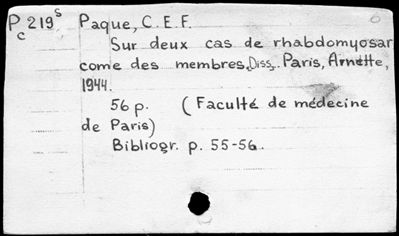 P 219 s Paque, C. E. F.
c
Sur deux cas de rhabdomyosar
come des membres, Diss. Paris, Arnette,
1944.
56 p. (Faculté de médecine
de Paris)
Bibliogr. p. 55-56.